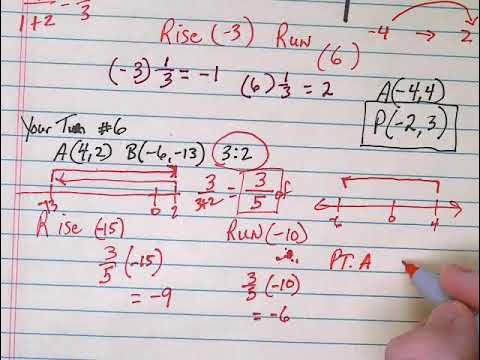 1+2 - 3
-4 → 2
Rise (-3) Run (6)
(-3) 1/3 = -1 (6) 1/3 = 2
A(-4,4)
P(-2,3)
Your Turn #6
A(4,2) B(-6,-13) 3:2
3/3+2 = 3/5 of
-13 0 2
-6 0 4
Rise (-15) Run (-10)
3/5 (-15)
= -9
3/5 (-10)
= -6
PT. A